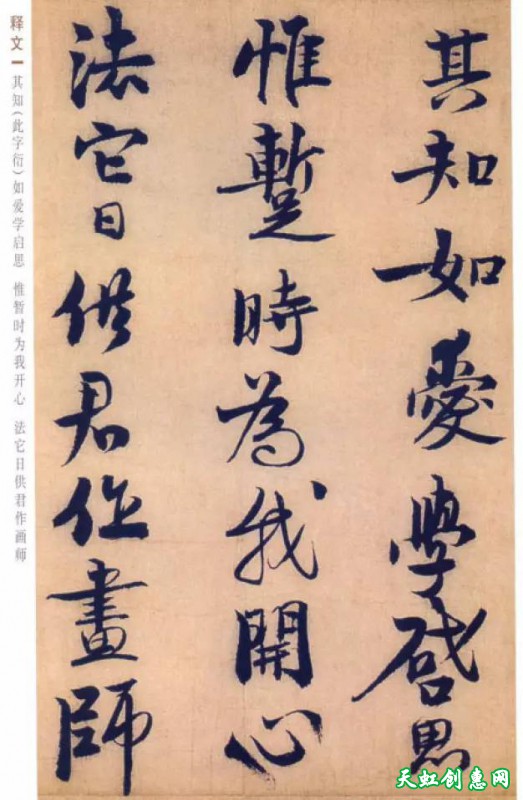 其知如愛學啓思
惟蹔時為我開心
法它日供君作畫師
释文
其知(此字衍)如爱学启思 惟暂时为我开心 法它日供君作画师
天虹创惠网